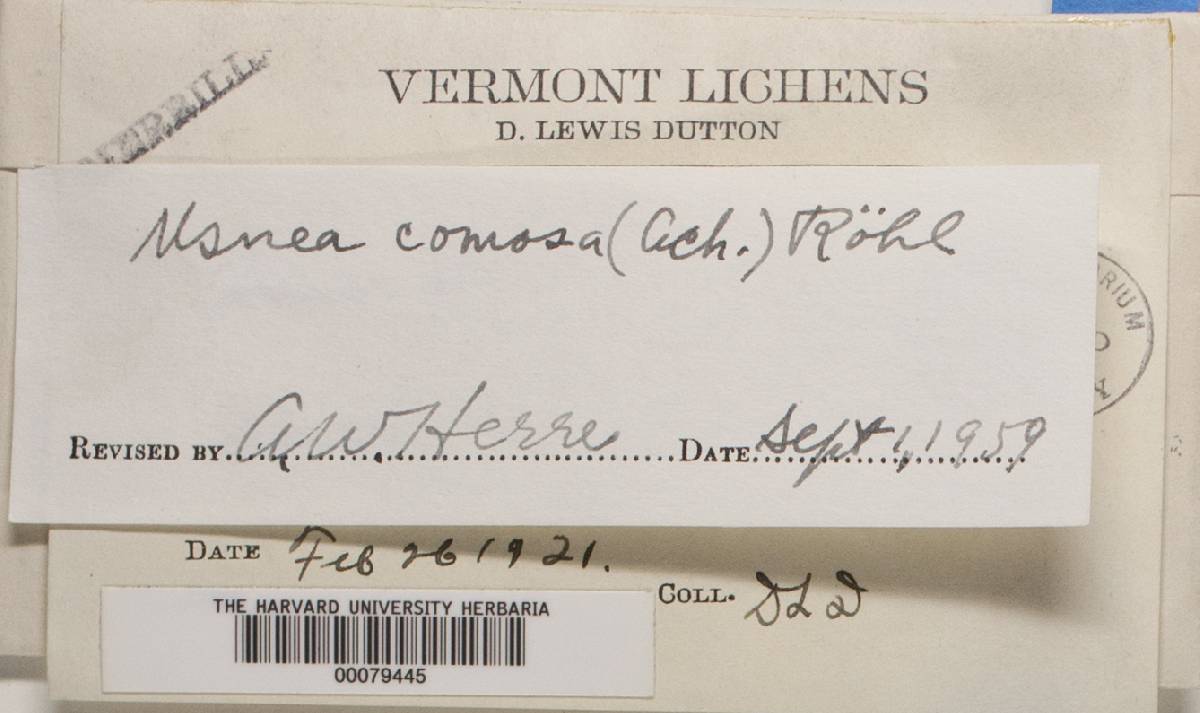 MERRILL
VERMONT LICHENS
D. LEWIS DUTTON
Usnea comosa (Ach.) Röhl
REVISED BY A W. Herre DATE Sept 1, 1959
DATE Feb 26 1921.
COLL. DLD
THE HARVARD UNIVERSITY HERBARIA
00079445